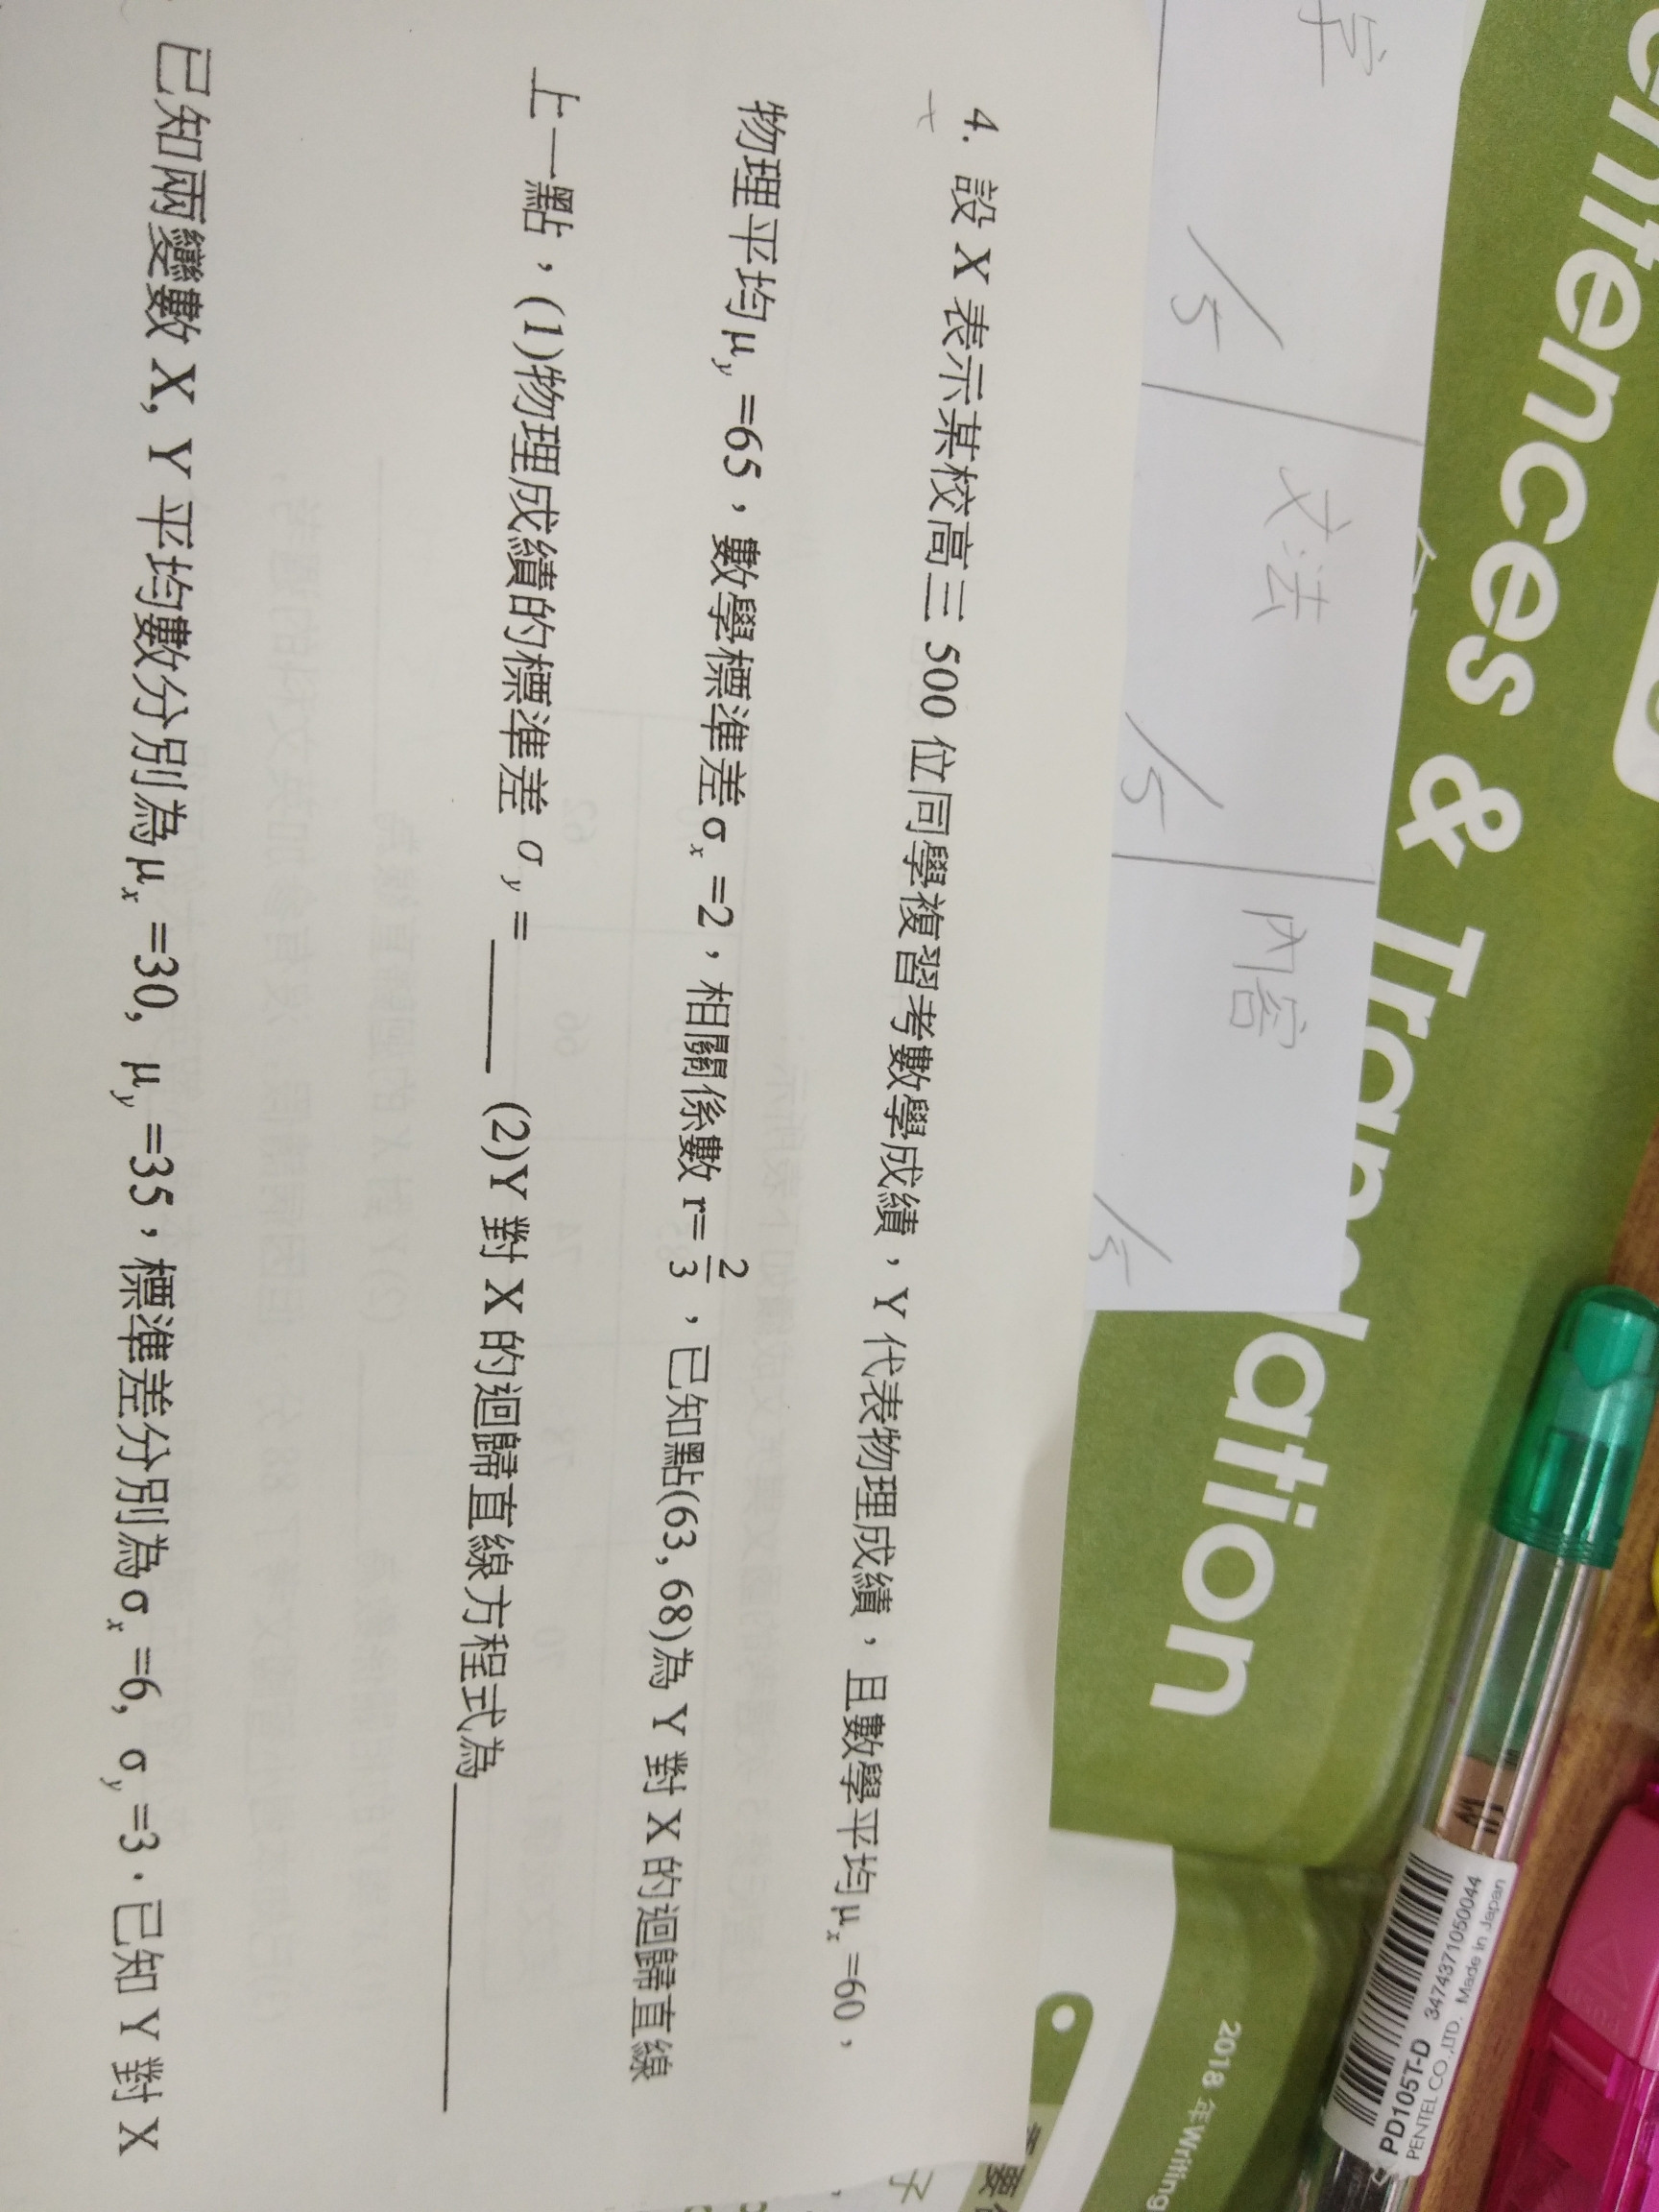 entences & Translation
2018 年Writing
字 /5 文法 /5 內容 /5
4. 設 X 表示某校高三 500 位同學複習考數學成績，Y 代表物理成績，且數學平均μx=60，
物理平均μy=65，數學標準差σx=2，相關係數 r=2/3，已知點(63, 68)為 Y 對 X 的迴歸直線
上一點，(1)物理成績的標準差 σy=____ (2)Y 對 X 的迴歸直線方程式為________
已知兩變數 X, Y 平均數分別為μx=30, μy=35，標準差分別為σx=6, σy=3．已知 Y 對 X
PD105T-D 3474371050044
PENTEL CO.,LTD. Made in Japan